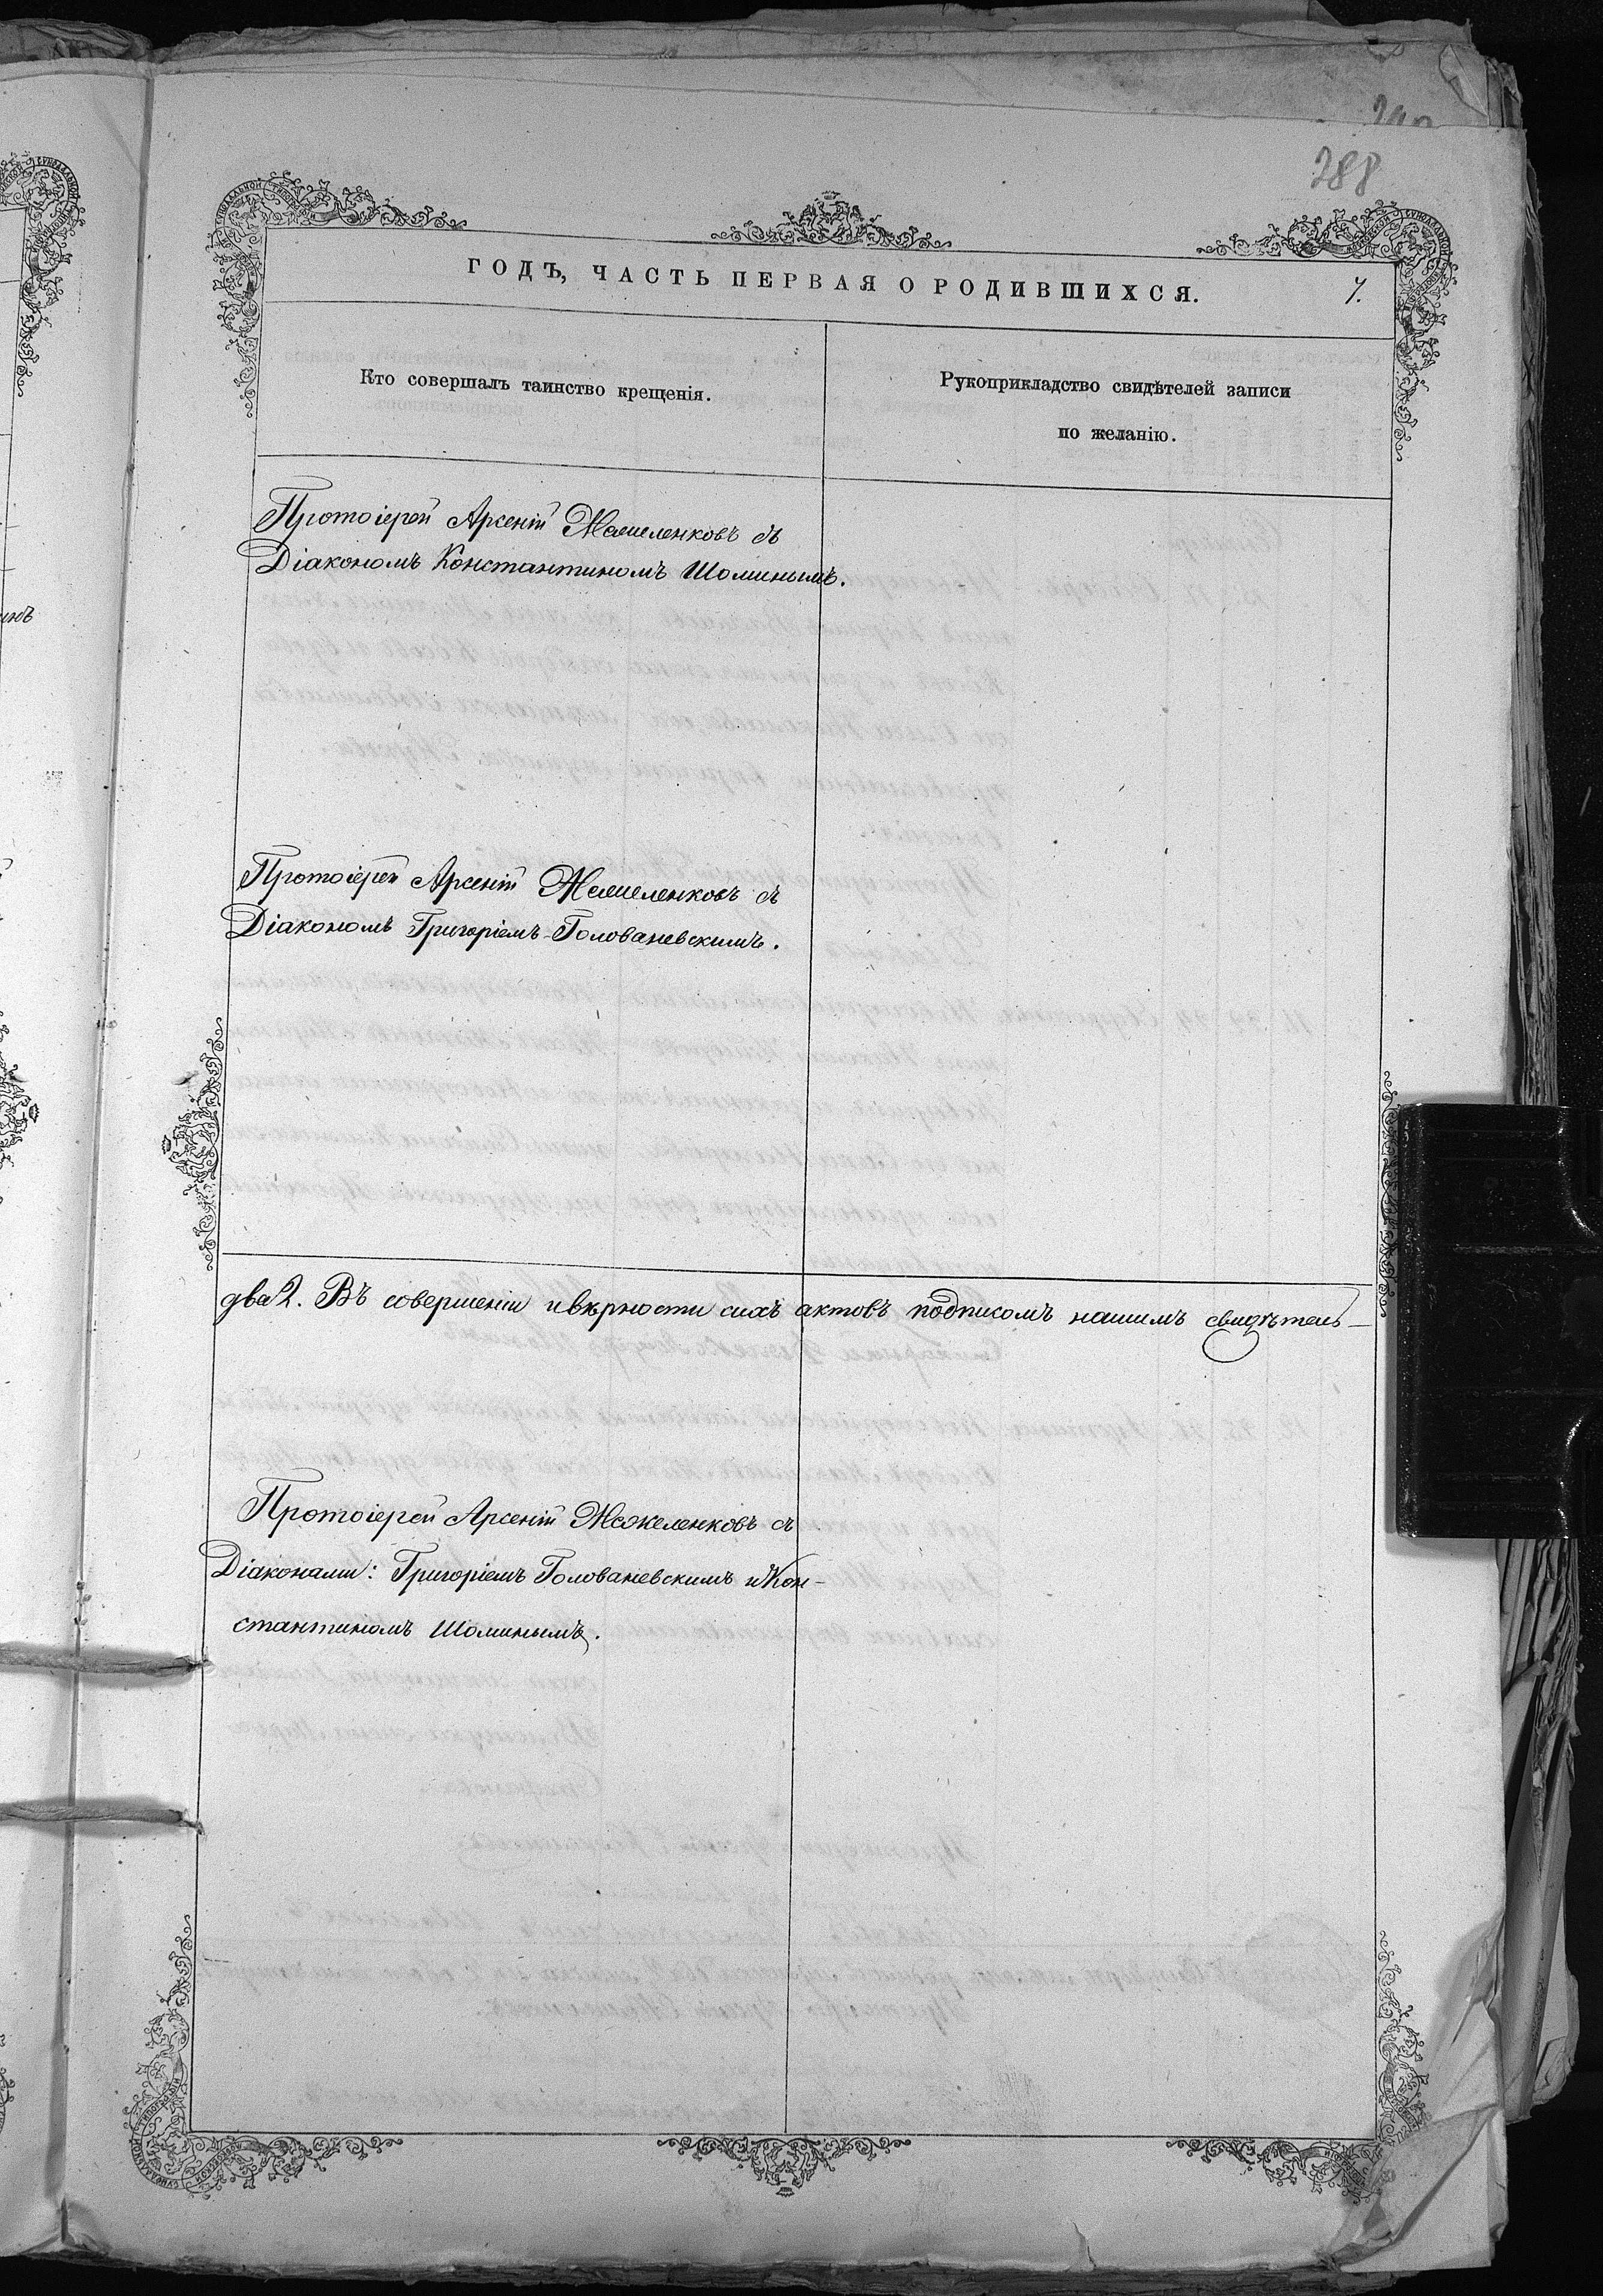 288
ГОДЪ, ЧАСТЬ ПЕРВАЯ О РОДИВШИХСЯ.
7.
Кто совершалъ таинство крещенія.
Рукоприкладство свидѣтелей записи
по желанію.
Протоіерей Арсеній Жежеленковъ съ
Діакономъ Константиномъ Шоминымъ.
Протоіерей Арсеній Жежеленковъ съ
Діакономъ Григоріемъ Голованевскимъ.
два 2. Въ совершеніи и вѣрности сихъ актовъ подписомъ нашимъ свидѣтель-
Протоіерей Арсеній Жежеленковъ съ
Діаконами: Григоріемъ Голованевскимъ и Кон-
стантиномъ Шоминымъ.